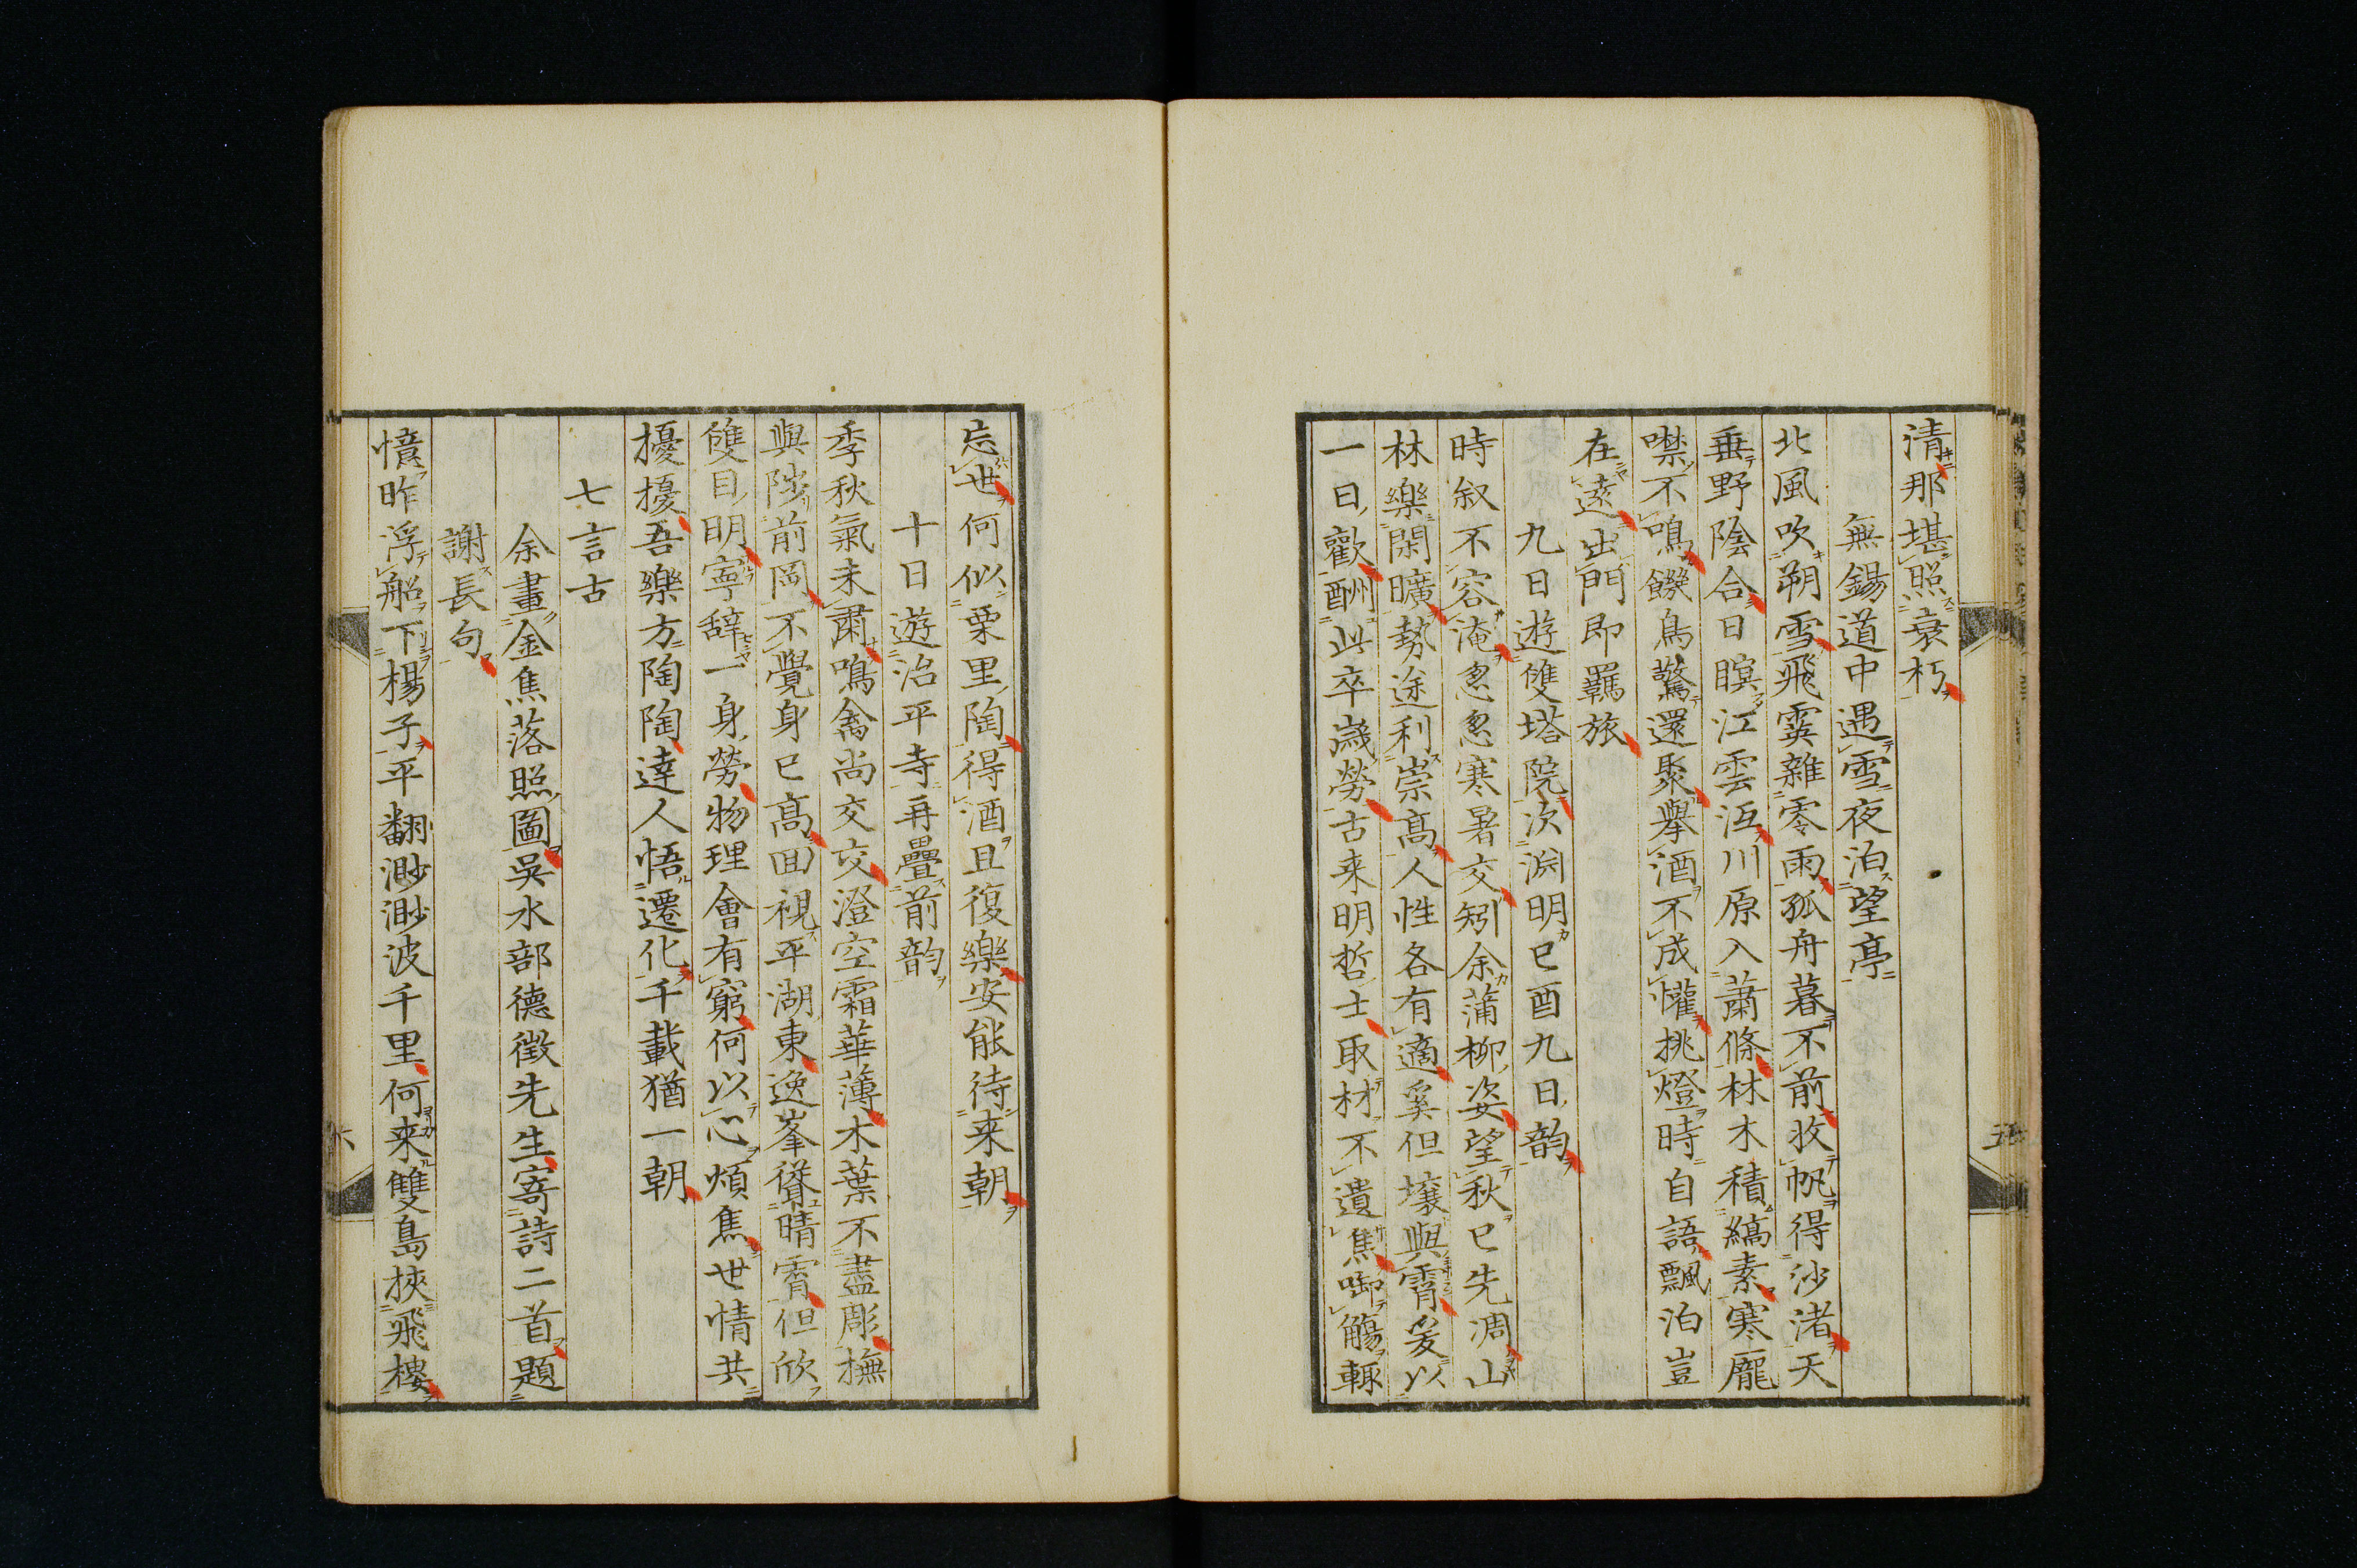 清那堪照衰朽
無錫道中遇雪夜泊望亭
北風吹朔雪飛霙雜零雨孤舟暮不前收帆得沙渚天
垂野陰合日瞑江雲沍川原入蕭條林木積縞素寒厖
噤不鳴饑鳥驚還聚擧酒不成懽挑燈時自語飄泊豈
在遠出門即羈旅
九日遊雙塔院次淵明己酉九日韵
時叙不容淹怱怱寒暑交矧余蒲柳姿望秋已先凋山
林樂閑曠勢途利崇高人性各有適奚但壤與霄爰以
一日歡酬此卒歲勞古来明哲士取材不遺焦啣觴輙
五
忘世何似栗里陶得酒且復樂安能待来朝
十日遊治平寺再疊前韵
季秋氣未肅鳴禽尚交交澄空霜華薄木葉不盡彫撫
與陟前岡不覺身已高囬視平湖東逸峯聳晴霄但欣
雙目明寧辭一身勞物理會有窮何以心煩焦世情共
擾擾吾樂方陶陶達人悟遷化千載猶一朝
七言古
余畫金焦落照圖吳水部德徵先生寄詩二首題
謝長句
憶昨浮船下楊子平翻渺渺波千里何来雙島挾飛樓
六